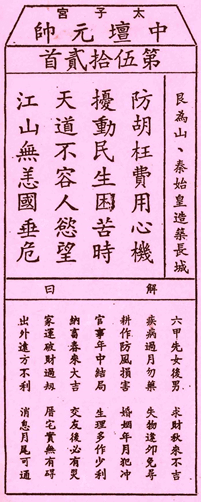 太子宮
中壇元帥
第伍拾貳首
艮為山、秦始皇造築長城
防胡枉費用心機
擾動民生困苦時
天道不容人慾望
江山無恙國垂危
解曰
六甲先女後男 求財秋來不吉
疾病過月勿藥 失物 免尋
耕作防風損害 婚姻年月犯冲
官事年中結局 生理多作少利
納畜春來大吉 交友後必有災
家運破財過 厝宅實無有碍
出外遠方不利 消息月尾可通